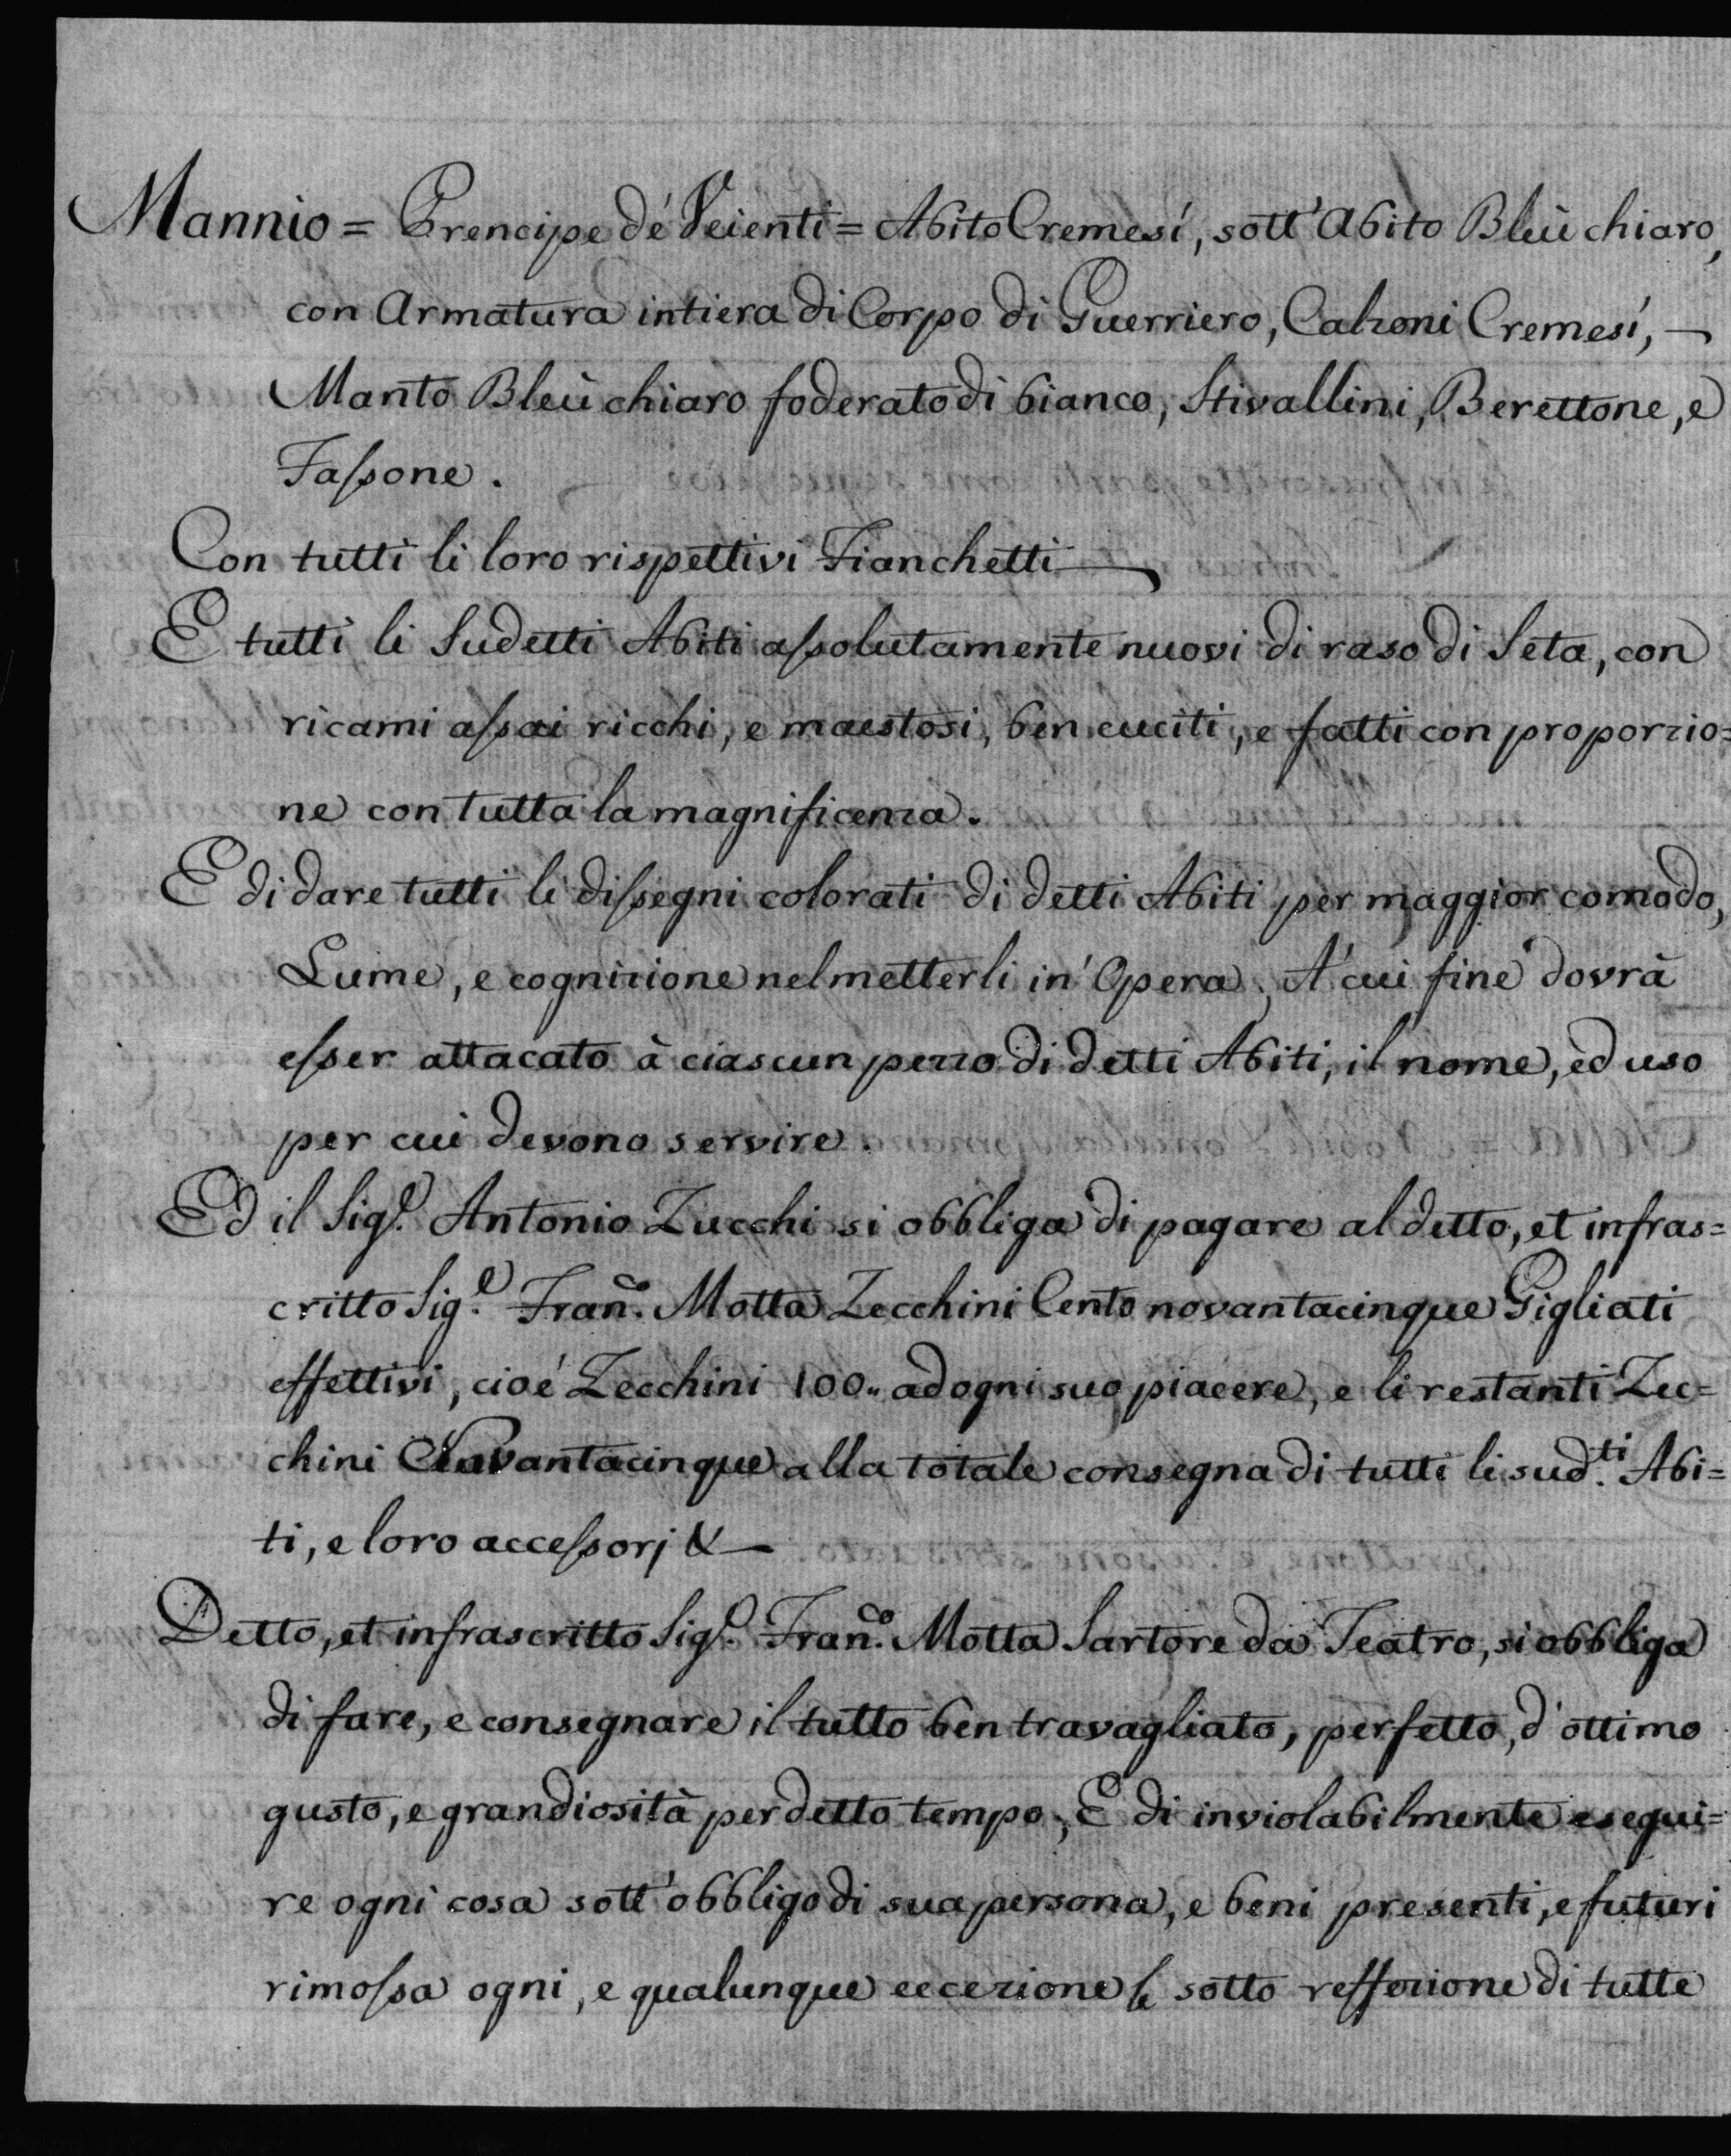 Mannio = Prencipe dé Veienti = Abito Cremesí, sott' Abito Bleù chiaro,
con Armatura intiera di Corpo di Guerriero, Calzoni Cremesí, —
Manto Bleù chiaro foderato di bianco, Stivallini, Berettone, e
Fassone.
Con tutti li loro rispettivi Fianchetti —
E tutti li Sudetti Abiti assolutamente nuovi di raso di Seta, con
ricami assai ricchi, e maestosi, ben cuciti, e fatti con proporzio=
ne con tutta la magnificenza.
E di dare tutti li dissegni colorati di detti Abiti per maggior comodo,
Lume, e cognizione nel metterli in' Opera, A' cui fine dovrà
esser attacato à ciascun pezzo di detti Abiti, il nome, ed uso
per cui devono servire.
Ed il Sig.r Antonio Zucchi si obbliga di pagare al detto, et infras=
critto Sig.r Fran.co Motta Zecchini Cento novantacinque Gigliati
effettivi, cioé Zecchini 100.. ad ogni suo piacere, e li restanti Zec=
chini Novantacinque alla totale consegna di tutti li sud.ti Abi=
ti, e loro accessorj & —
Detto, et infrascritto Sig.r Fran.co Motta Sartore da Teatro, si obbliga
di fare, e consegnare il tutto ben travagliato, perfetto, d'ottimo
gusto, e grandiosità per detto tempo, E di inviolabilmente esegui=
re ogni cosa sott' obbligo di sua persona, e beni presenti, e futuri
rimossa ogni, e qualunque eccezione sotto reffezione di tutte